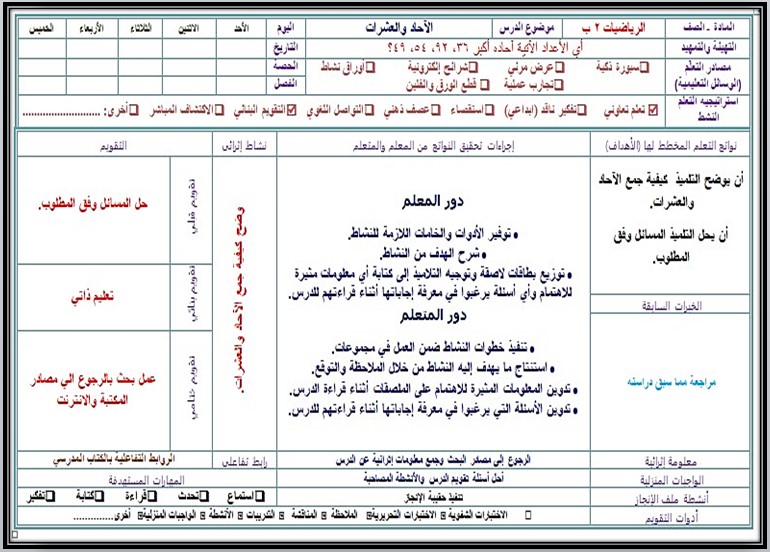 المادة - الصف الرياضيات ٢ ب موضوع الدرس الآحاد والعشرات اليوم الأحد الاثنين الثلاثاء الأربعاء الخميس
التهيئة والتمهيد أي الأعداد الآتية أحاده أكبر ٣٦، ٩٢، ٥٤، ٤٩؟ التاريخ
مصادر التعلم (الوسائل التعليمية) ☐سبورة ذكية ☐عرض مرئي ☐شرائح إلكترونية ☐أوراق نشاط الحصة
☐تجارب عملية ☐قطع الورق والفلين الفصل
استراتيجية التعلم النشط ☑تعلم تعاوني ☐تفكير ناقد (ابداعي) ☐استقصاء ☐عصف ذهني ☐التواصل اللغوي ☑التقويم البنائي ☐الاكتشاف المباشر ☐أخرى: ............................
نواتج التعلم المخطط لها (الأهداف) إجراءات تحقيق النواتج من المعلم والمتعلم نشاط إثرائي التقويم
أن يوضح التلميذ كيفية جمع الآحاد
والعشرات.
أن يحل التلميذ المسائل وفق
المطلوب.
الخبرات السابقة
مراجعة مما سبق دراسته
دور المعلم
• توفير الأدوات والخامات اللازمة للنشاط.
• شرح الهدف من النشاط.
• توزيع بطاقات لاصقة وتوجيه التلاميذ إلى كتابة أي معلومات مثيرة
للاهتمام وأي أسئلة يرغبوا في معرفة إجاباتها أثناء قراءتهم للدرس.
دور المتعلم
• تنفيذ خطوات النشاط ضمن العمل في مجموعات.
• استنتاج ما يهدف إليه النشاط من خلال الملاحظة والتوقع.
• تدوين المعلومات المثيرة للاهتمام على الملصقات أثناء قراءة الدرس.
• تدوين الأسئلة التي يرغبوا في معرفة إجاباتها أثناء قراءتهم للدرس.
وضح كيفية جمع الآحاد والعشرات.
تقويم قبلي
حل المسائل وفق المطلوب.
تقويم بنائي
تعليم ذاتي
تقويم ختامي
عمل بحث بالرجوع الي مصادر
المكتبة والانترنت
معلومة إثرائية الرجوع إلى مصادر البحث وجمع معلومات إثرائية عن الدرس رابط تفاعلي الروابط التفاعلية بالكتاب المدرسي
الواجبات المنزلية أحل أسئلة تقويم الدرس والأنشطة المصاحبة المهارات المستهدفة
أنشطة ملف الإنجاز تنفيذ حقيبة الإنجاز ☐استماع ☐تحدث ☐قراءة ☐كتابة ☐تفكير
أدوات التقويم ☐ الاختبارات الشفوية الاختبارات التحريرية الملاحظة المناقشة التدريبات الأنشطة الواجبات المنزلية أخرى..............